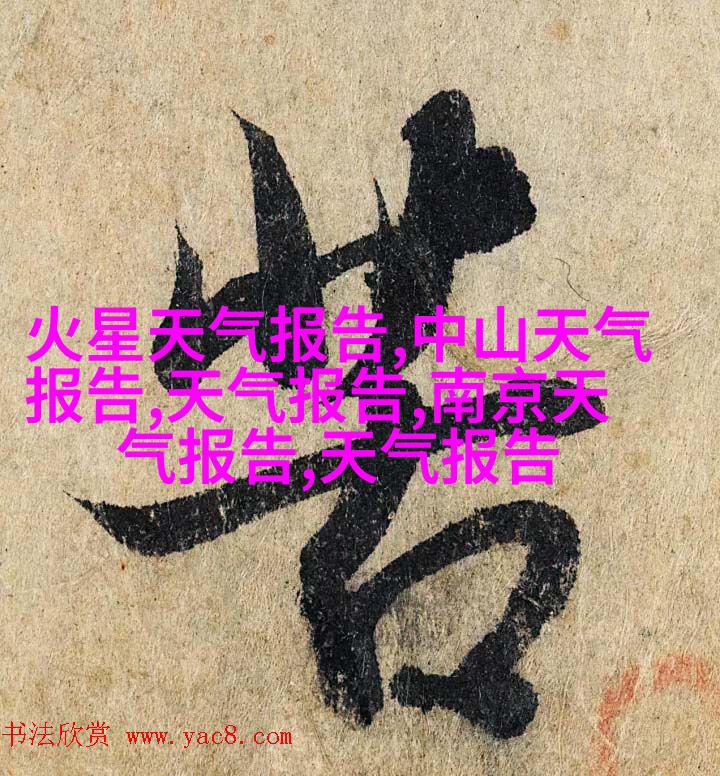 苦
火星天气报告,中山天气
报告,天气报告,南京天
气报告,天气报告
书法欣赏 www.yac8.com